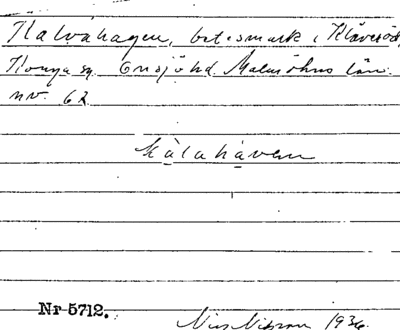 Kalvahagen, betesmark i Klåveröd,
Konga sn. Onsjö hd. Malmöhus län.
nr. 62
kàlahàven
Nr 5712. Nils Nilsson 1936.